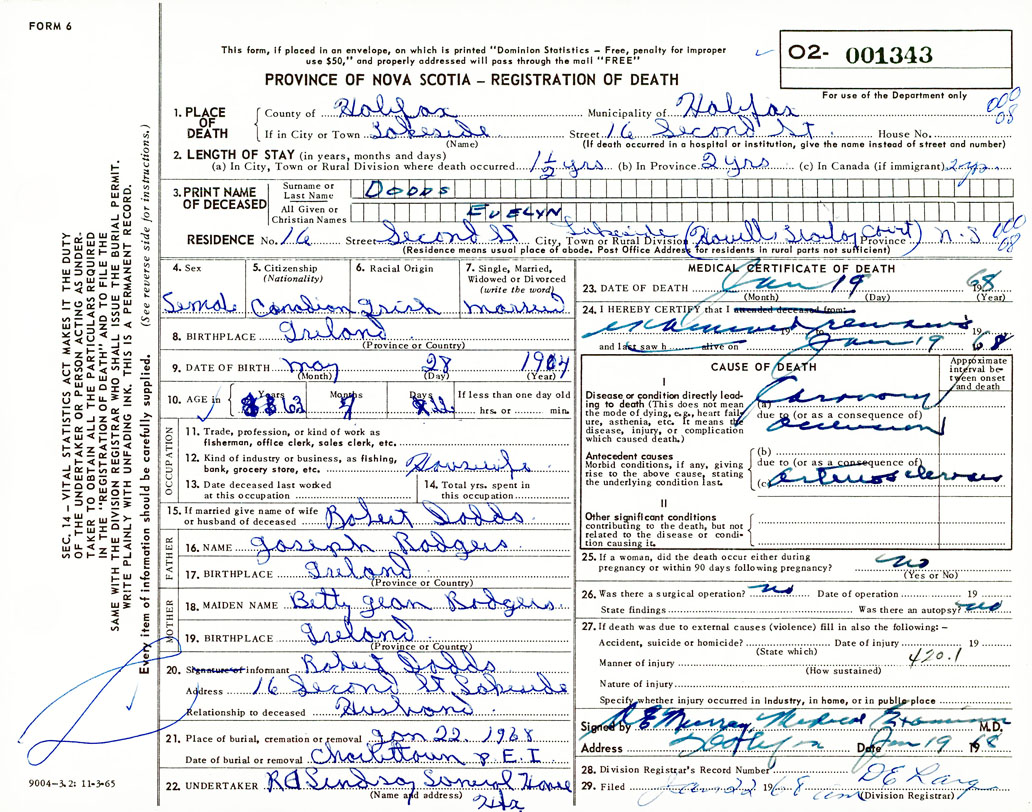 FORM 6
This form, if placed in an envelope, on which is printed "Dominion Statistics – Free, penalty for improper
use $50," and properly addressed will pass through the mail "FREE"
PROVINCE OF NOVA SCOTIA – REGISTRATION OF DEATH
02- 001343
For use of the Department only
000
08
1. PLACE OF DEATH
County of Halifax Municipality of Halifax
If in City or Town Lakeside Street 16 Second St. House No.
(Name) (If death occurred in a hospital or institution, give the name instead of street and number)
2. LENGTH OF STAY (in years, months and days)
(a) In City, Town or Rural Division where death occurred 1 1/2 yrs (b) In Province 2 yrs (c) In Canada (if immigrant) 2 yrs
3. PRINT NAME OF DECEASED
Surname or Last Name DODDS
All Given or Christian Names EVELYN
RESIDENCE No. 16 Street Second St City, Town or Rural Division Lakeside Court) Province N.S
000
08
(Residence means usual place of abode. Post Office Address for residents in rural parts not sufficient)
4. Sex Female
5. Citizenship (Nationality) Canadian
6. Racial Origin Irish
7. Single, Married, Widowed or Divorced (write the word) married
8. BIRTHPLACE Ireland
(Province or Country)
9. DATE OF BIRTH May 28
(Month) (Day) (Year)
10. AGE in Years 63 Months Days If less than one day old hrs. or min.
OCCUPATION
11. Trade, profession, or kind of work as
fisherman, office clerk, sales clerk, etc.
12. Kind of industry or business, as fishing,
bank, grocery store, etc. Housewife
13. Date deceased last worked
at this occupation
14. Total yrs. spent in
this occupation
15. If married give name of wife
or husband of deceased Robert Dodds
FATHER
16. NAME Joseph Rodgers
17. BIRTHPLACE Ireland
(Province or Country)
MOTHER
18. MAIDEN NAME Betty Jean Rodgers
19. BIRTHPLACE Ireland
(Province or Country)
20. Signature of informant Robert Dodds
Address 16 Second St Lakeside
Relationship to deceased Husband
21. Place of burial, cremation or removal Jan 22, 1968
Date of burial or removal Charlottetown P.E.I
22. UNDERTAKER RA Lindsay Funeral Home
(Name and address) Hfx
MEDICAL CERTIFICATE OF DEATH
23. DATE OF DEATH Jan 19 1968
(Month) (Day) (Year)
24. I HEREBY CERTIFY that I attended deceased from:
examined remains 19
and last saw h alive on Jan 19 1968
CAUSE OF DEATH
Approximate interval between onset and death
I
Disease or condition directly leading to death (This does not mean
the mode of dying, e.g., heart failure, asthenia, etc. It means the
disease, injury, or complication
which caused death.)
(a) Coronary
due to (or as a consequence of)
occlusion
Antecedent causes
Morbid conditions, if any, giving
rise to the above cause, stating
the underlying condition last.
(b)
due to (or as a consequence of)
(c) arteriosclerosis
II
Other significant conditions
contributing to the death, but not
related to the disease or condition causing it.
25. If a woman, did the death occur either during
pregnancy or within 90 days following pregnancy? no
(Yes or No)
26. Was there a surgical operation? no Date of operation 19
State findings Was there an autopsy? no
27. If death was due to external causes (violence) fill in also the following: –
Accident, suicide or homicide? Date of injury 19
(State which)
Manner of injury 420.1
(How sustained)
Nature of injury
Specify whether injury occurred in Industry, in home, or in public place
Signed by R E Murray, Medical Examiner M.D.
Address Halifax Date Jan 19 1968
28. Division Registrar's Record Number
29. Filed Jan 22 1968
(Division Registrar)
SEC. 14 – VITAL STATISTICS ACT MAKES IT THE DUTY
OF THE UNDERTAKER OR PERSON ACTING AS UNDERTAKER TO OBTAIN ALL THE PARTICULARS REQUIRED
IN THE "REGISTRATION OF DEATH" AND TO FILE THE
SAME WITH THE DIVISION REGISTRAR WHO SHALL ISSUE THE BURIAL PERMIT.
WRITE PLAINLY WITH UNFADING INK. THIS IS A PERMANENT RECORD.
Every item of information should be carefully supplied. (See reverse side for instructions.)
9004-3.2: 11-3-65